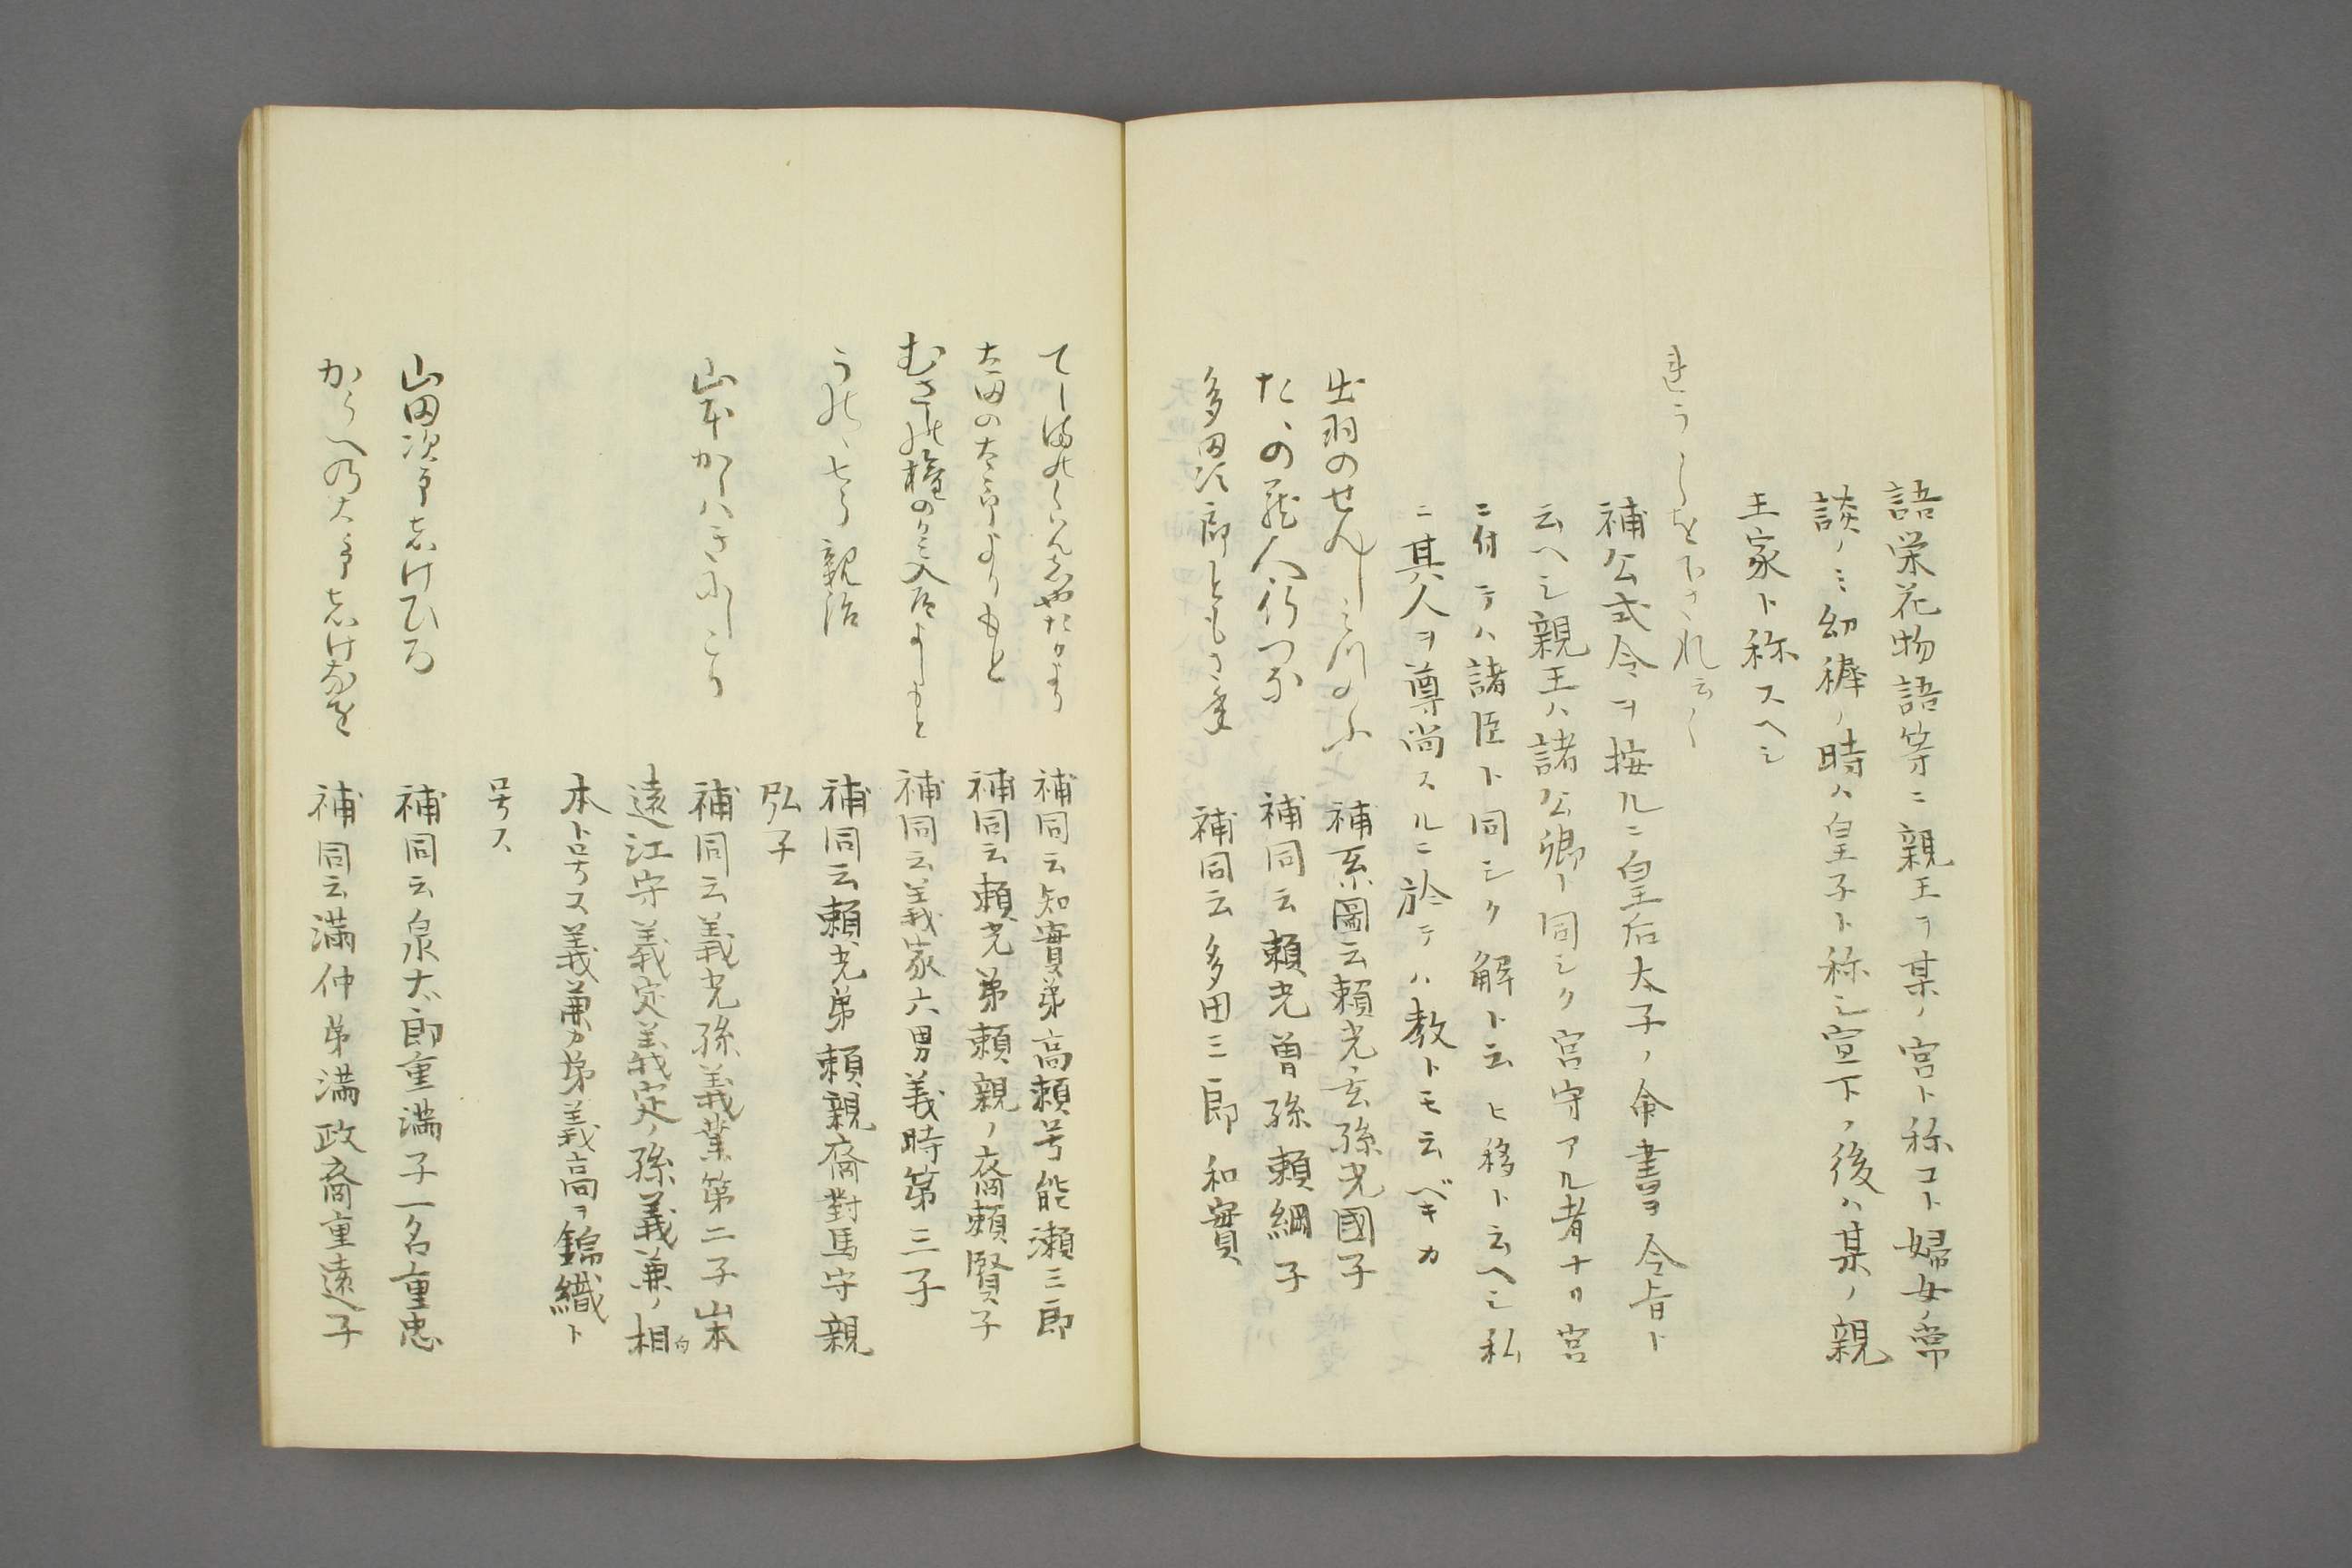 語栄花物語等ニ親王ヲ某ノ宮ト称コト婦女ノ常
談ノミ幼稺ノ時ハ皇子ト称シ宣下ノ後ハ某ノ親
王家ト称スヘシ
れうしを下され云〱
補公式令ヲ按ルニ皇后太子ノ命書ヲ令旨ト
云ヘシ親王ハ諸公卿ト同シク宮守アル者ナリ宮
ニ付テハ諸臣ト同シク解ト云ヒ移ト云ヘシ私
ニ其人ヲ尊尚スルニ於テハ教トモ云ベキカ
出羽のせんしみつのふ 補系圖云頼光ノ玄孫光國子
たゝの蔵人行つな 補同云頼光曽孫頼綱子
多田次郎ともさ年 補同云多田三郎和實
てしまのくわんしやたかより 補同云知實弟高頼号能瀬三郎
太田の太郎よりもと 補同云頼光弟頼親ノ裔頼賢子
むさしの権のかみ入道よしもと 補同云義家六男義時第三子
うのゝ七郎親治 補同云頼光弟頼親裔對馬守親
弘子
山本かしハきにしこり 補同云義光孫義業第二子山本
遠江守義定義定ノ孫義兼ノ相向
本ト号ス義兼カ弟義高ヲ錦織ト
号ス
山田次郎しけひろ 補同云泉太郎重満子一名重忠
かうへの太郎しけなを 補同云満仲弟満政裔重遠子